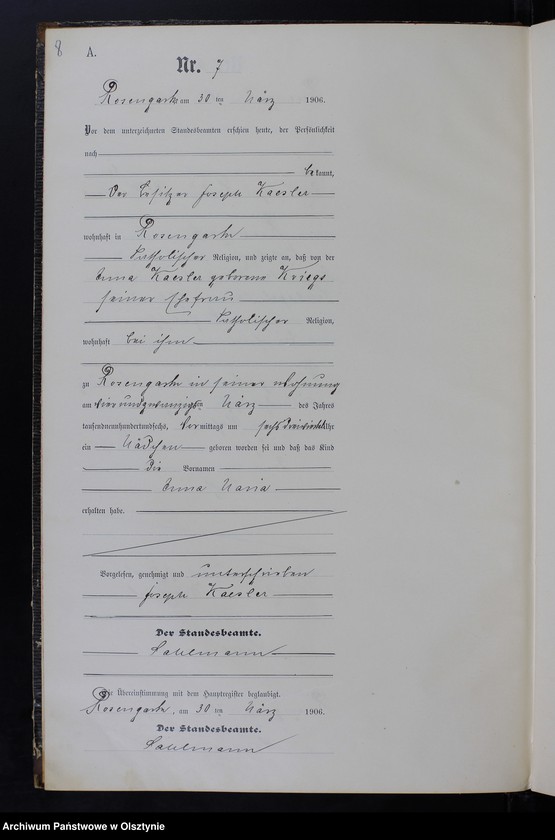 8
A.
Nr. 7
Rosengarth am 30 ten März 1906.
Vor dem unterzeichneten Standesbeamten erschien heute, der Persönlichkeit
nach
bekannt,
Der Besitzer Joseph Kaesler
wohnhaft in Rosengarth
katholischer Religion, und zeigte an, daß von der
Anna Kaesler geborene Kriegs
seiner Ehefrau
katholischer Religion,
wohnhaft bei ihm
zu Rosengarth in seiner Wohnung
am vierundzwanzigsten März des Jahres
tausendneunhundertundsechs, Vormittags um sechs dreiviertel Uhr
ein Mädchen geboren worden sei und daß das Kind
die Vornamen
Anna Maria
erhalten habe.
Vorgelesen, genehmigt und unterschrieben
Joseph Kaesler
Der Standesbeamte.
Sahlmann
Die Übereinstimmung mit dem Hauptregister beglaubigt.
Rosengarth, am 30 ten März 1906.
Der Standesbeamte.
Sahlmann
Archiwum Państwowe w Olsztynie